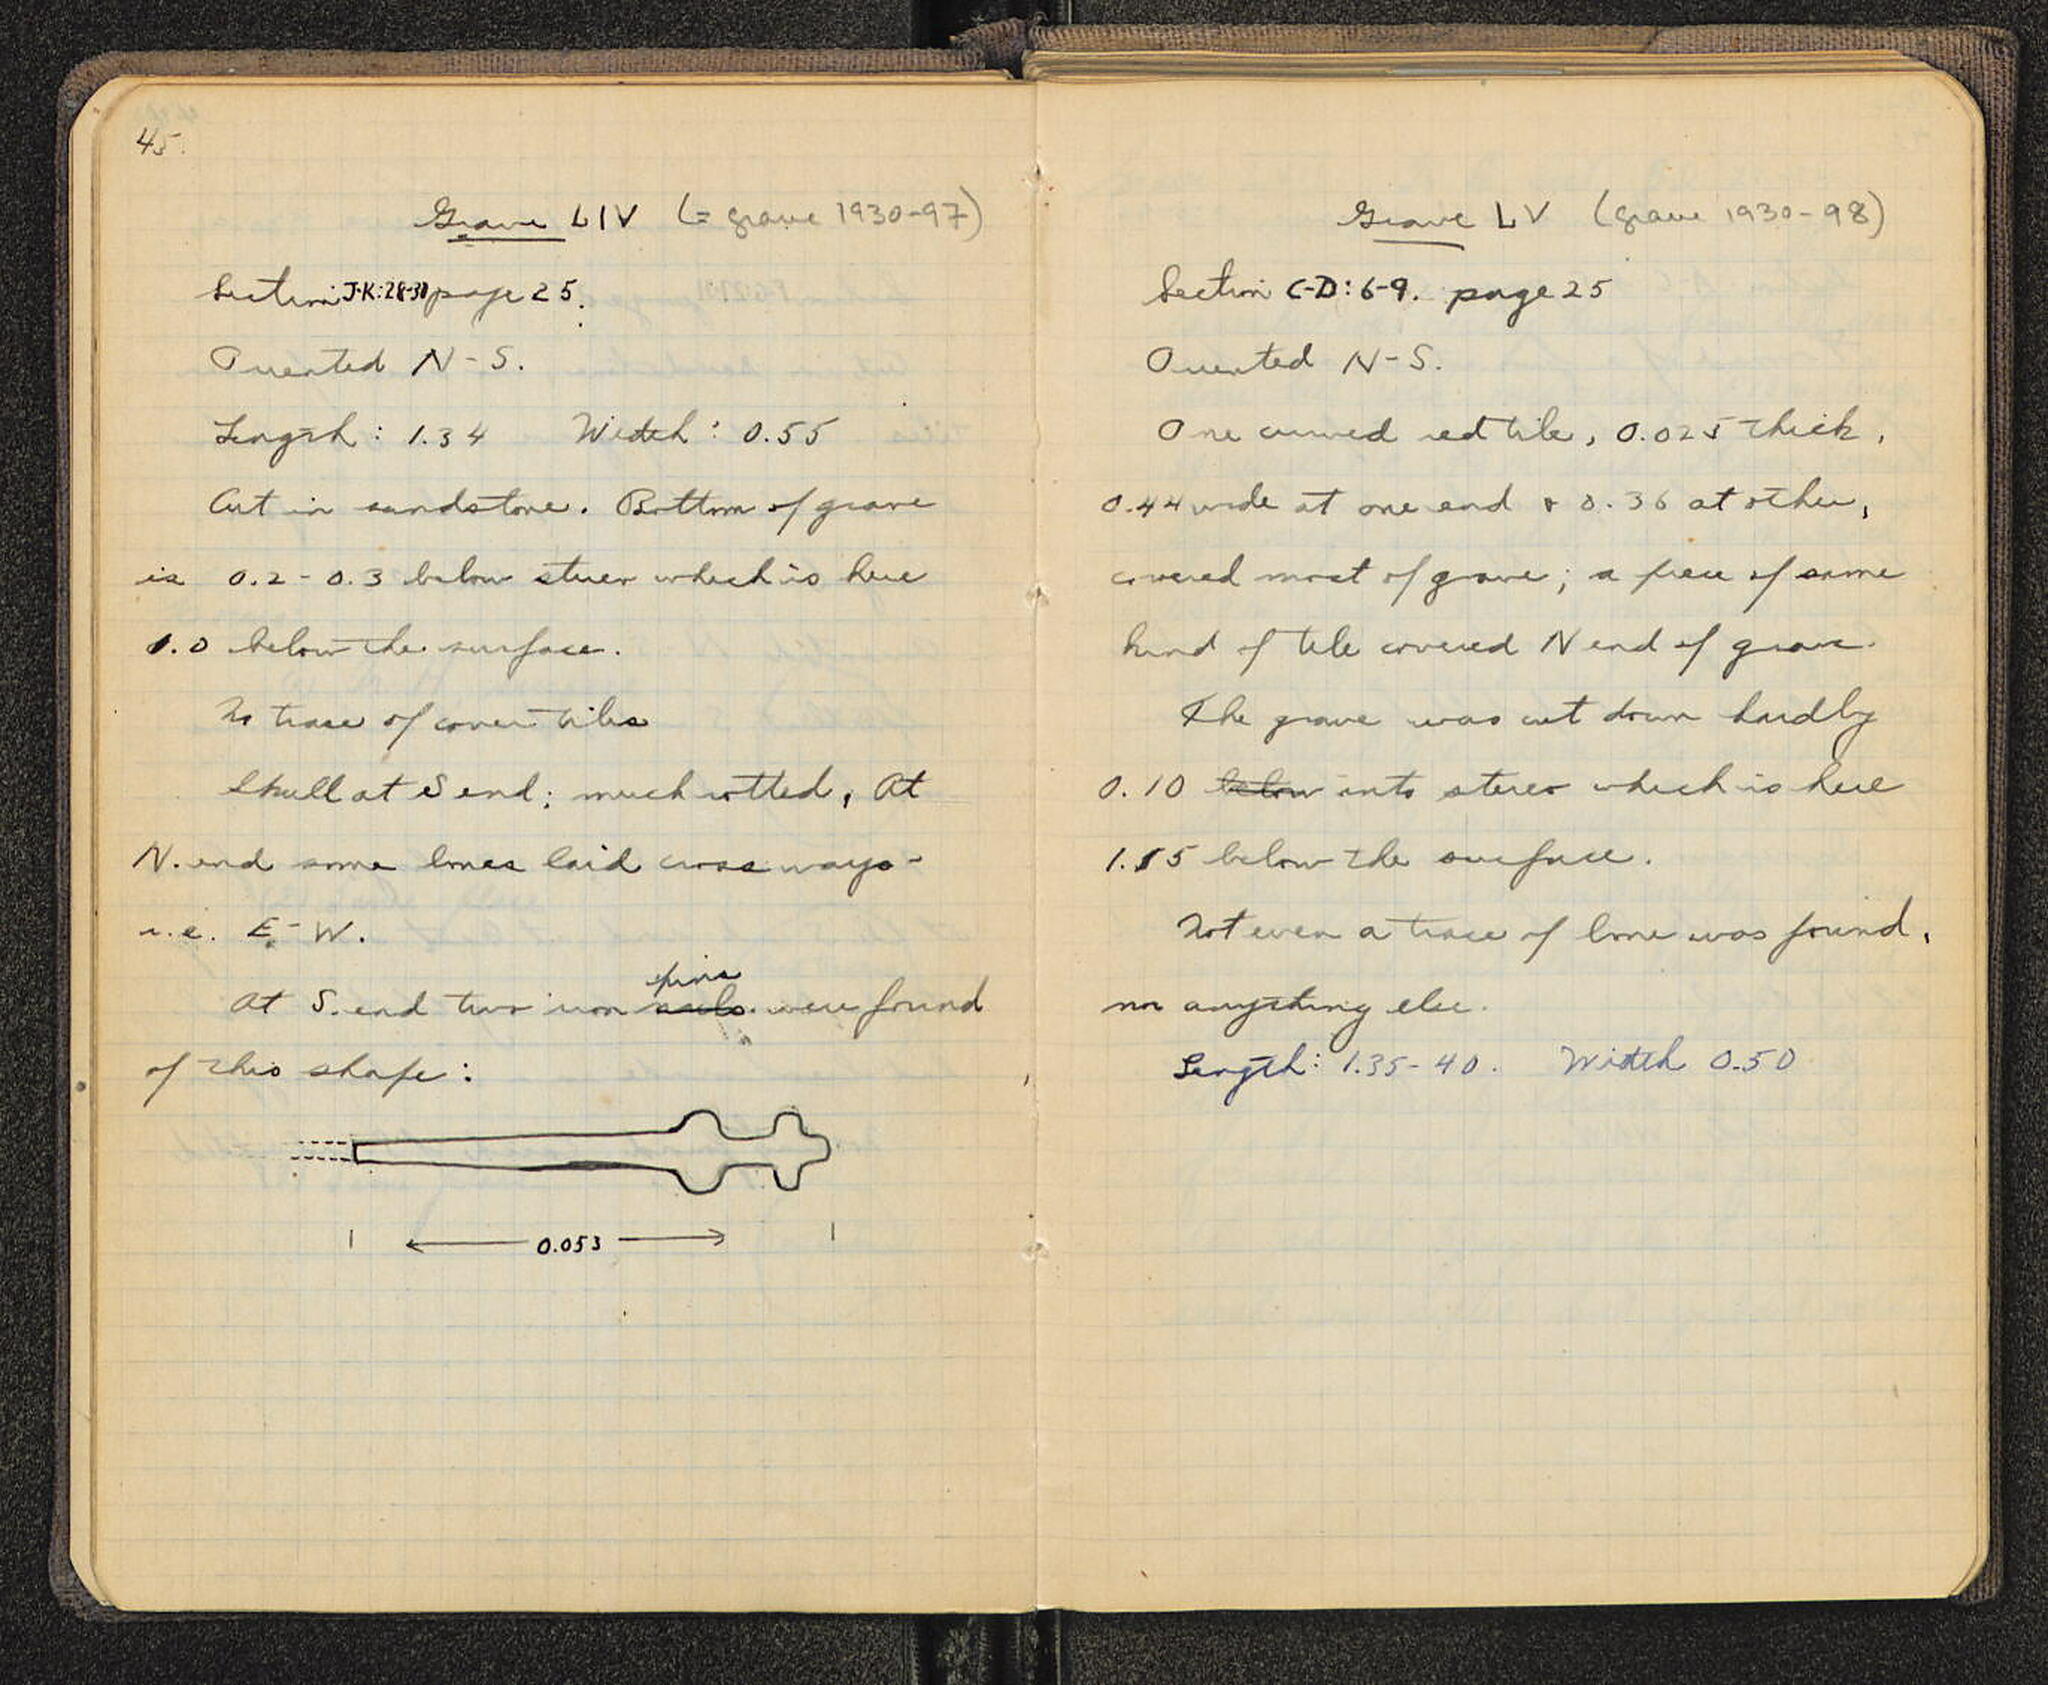 45.
Grave LIV (= grave 1930-97)
Section J-K:28-30 page 25.
Oriented N-S.
Length: 1.34 Width: 0.55
Cut in sandstone. Bottom of grave
is 0.2-0.3 below stereo which is here
1.0 below the surface.
No trace of cover tiles
Skull at S end; much rotted. At
N. end some bones laid crossways-
i.e. E-W.
pins
At S. end two iron nails were found
of this shape:
0.053
Grave LV (grave 1930-98)
Section C-D:6-9. page 25
Oriented N-S.
One curved red tile, 0.025 thick,
0.44 wide at one end & 0.36 at other,
covered most of grave; a piece of same
kind of tile covered N end of grave.
The grave was cut down hardly
0.10 below into stereo which is here
1.15 below the surface.
Not even a trace of bone was found,
nor anything else.
Length: 1.35-40. Width 0.50